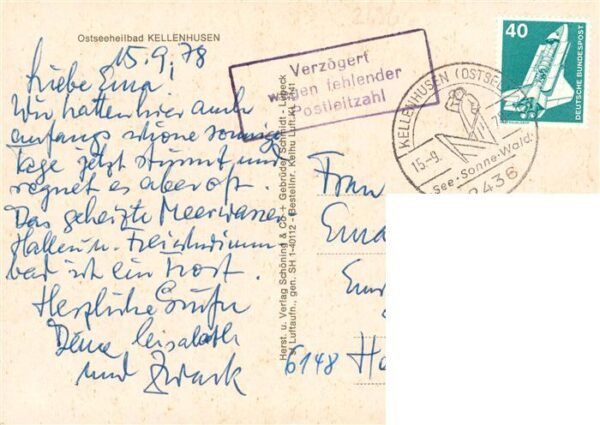 Ostseeheilbad KELLENHUSEN
15.9.78
Liebe Erna!
Wir hatten hier auch
anfangs schöne sonnige
Tage jetzt stürmt und
regnet es aber oft
Das geheizte Meerwasser
Hallen u. Freischwimm
bad ist ein Trost.
Herzliche Grüße
Deine
und
Herst. u. Verlag Schöning & Co + Gebrüder Schmidt - Lübeck
Luftaufn., gen. SH 1-40112 - Bestellnr. Kelhu Luft KL 7441
Verzögert
wegen fehlender
Postleitzahl
KELLENHUSEN (OSTSEE)
15.-9. 7
See-Sonne-Wald
2436
40
DEUTSCHE BUNDESPOST
Frau
Erna
6148 H